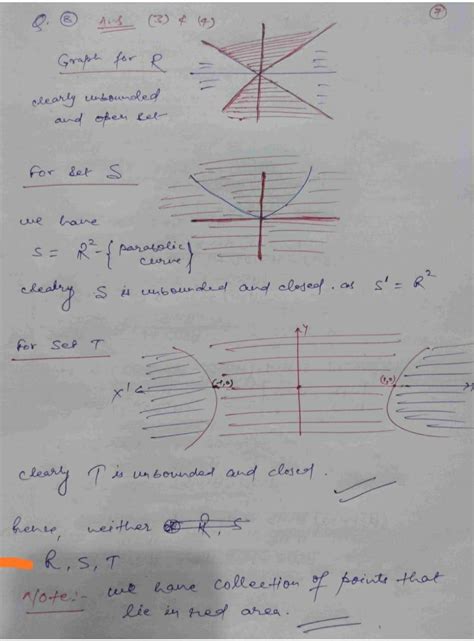 Q. 8 Ans (3) & (4)
7
Graph for R
clearly unbounded
and open set
For set S
we have
S = R² - {parabolic
curve}
clearly S is unbounded and closed. as S' = R²
For Set T
Y
X'
(-1,0)
(1,0)
clearly T is unbounded and closed.
hence, neither R, S
R, S, T
Note:- we have collection of points that
lie in red area.